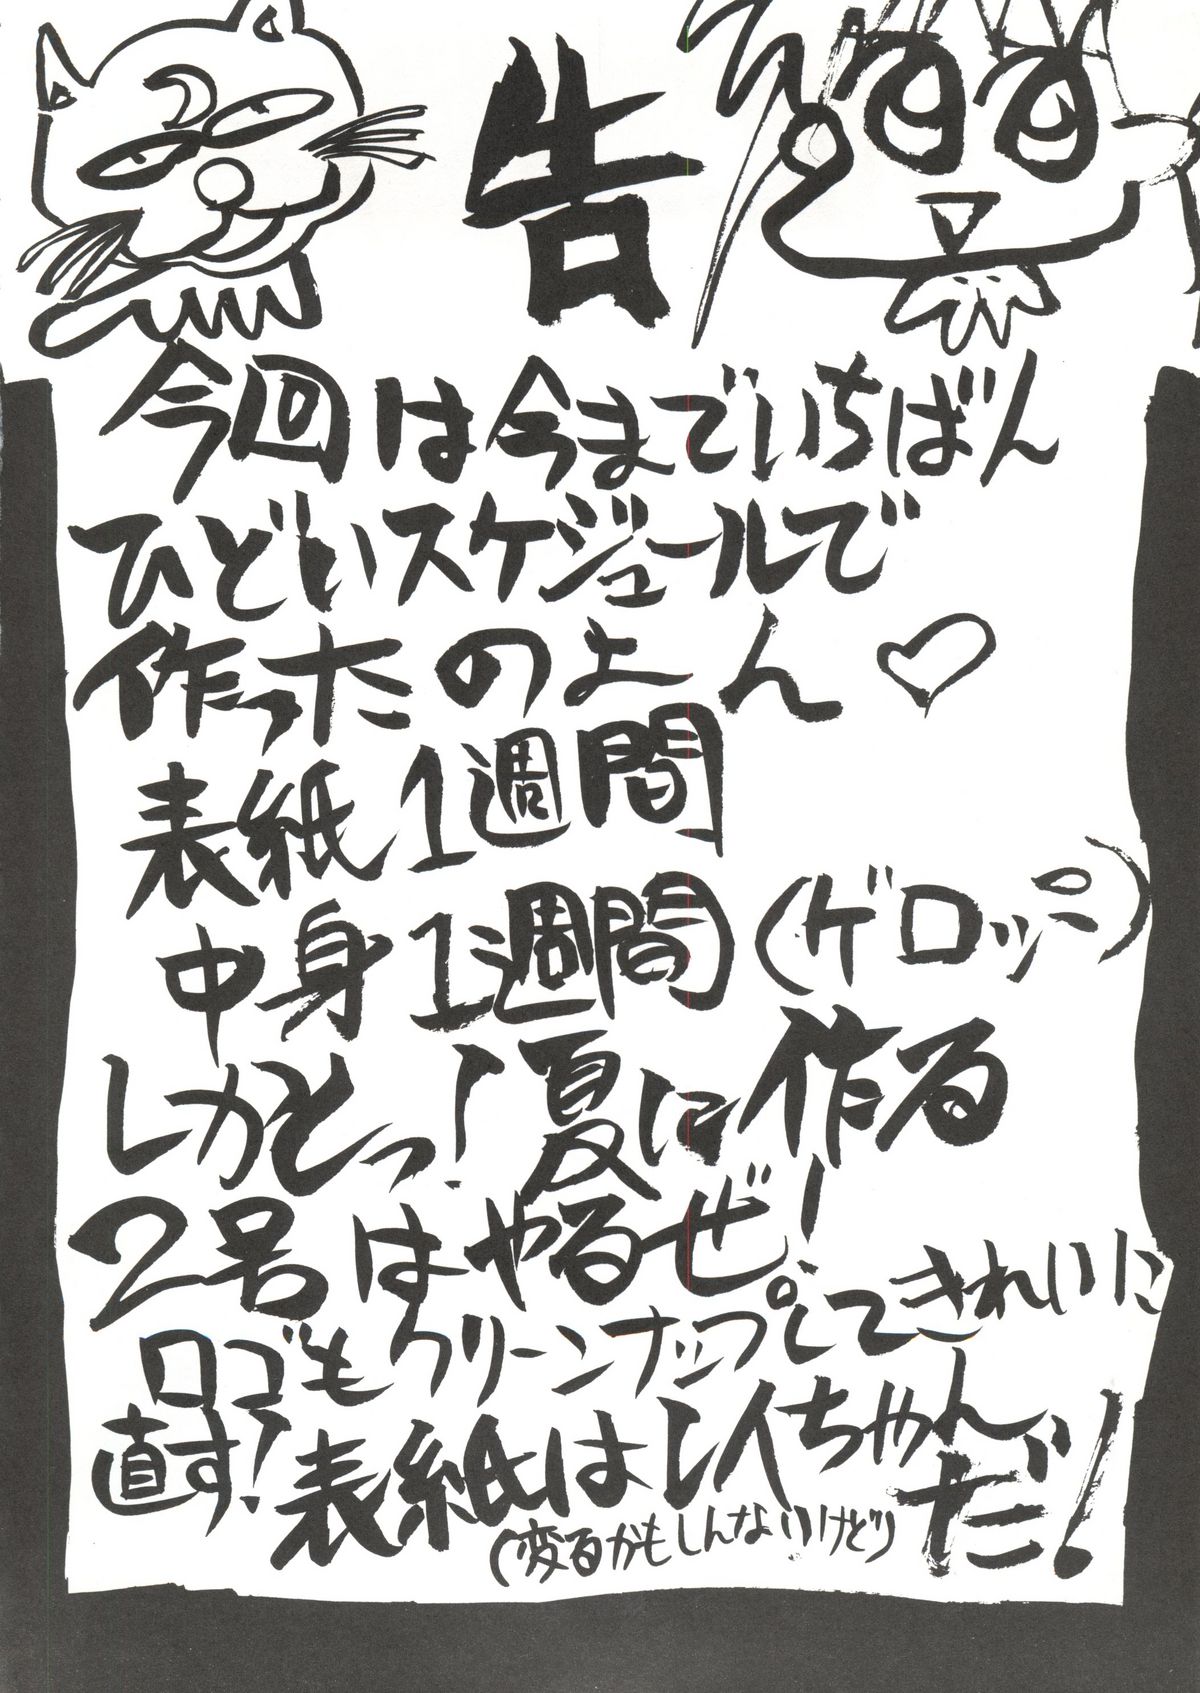 告
今回は今までいちばん
ひどいスケジュールで
作ったのよん♡
表紙1週間
中身1週間(ゲロッパ)
しかとっ!夏に作る
2号はやるぜ!
ロゴもクリーンナップしてきれいに
直す!表紙はレイちゃんだ!
(変るかもしんないけどリ